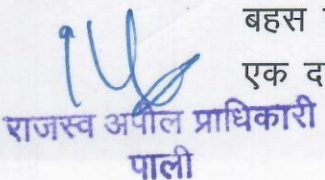 बहस
एक
राजस्व अपील प्राधिकारी
पाली